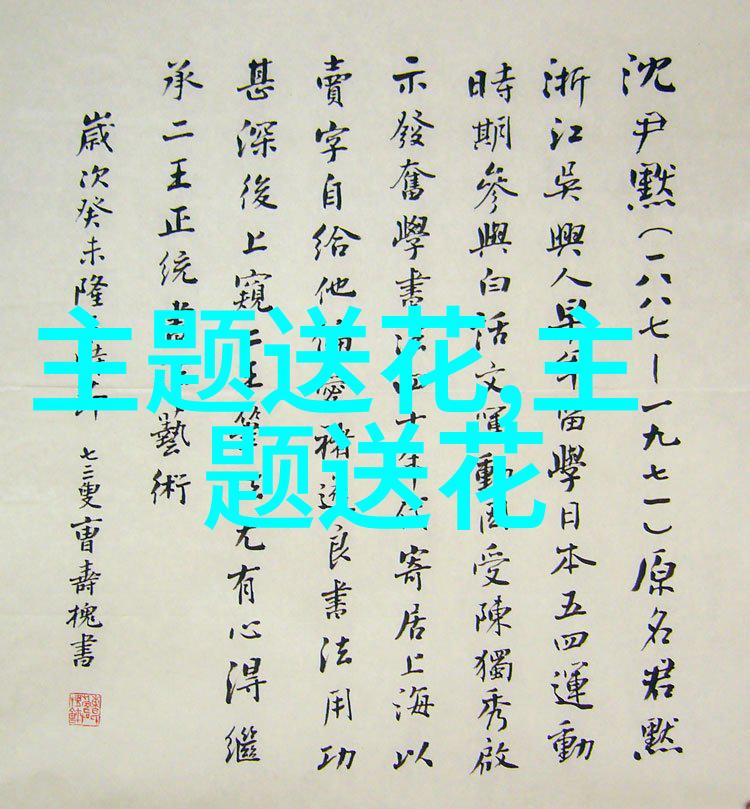 沈尹默(一八八七—一九七一)原名君默
浙江吳興人早年留學日本五四運動
時期參與白話文運動因受陳獨秀啟
示發奮學書法四十年代寄居上海以
賣字自給他偏愛褚遂良書法用功
甚深後上窺二王筆尤有心得繼
承二王正統書藝術
歲次癸未隆時節 七三叟曹壽槐書
主题送花,主
题送花